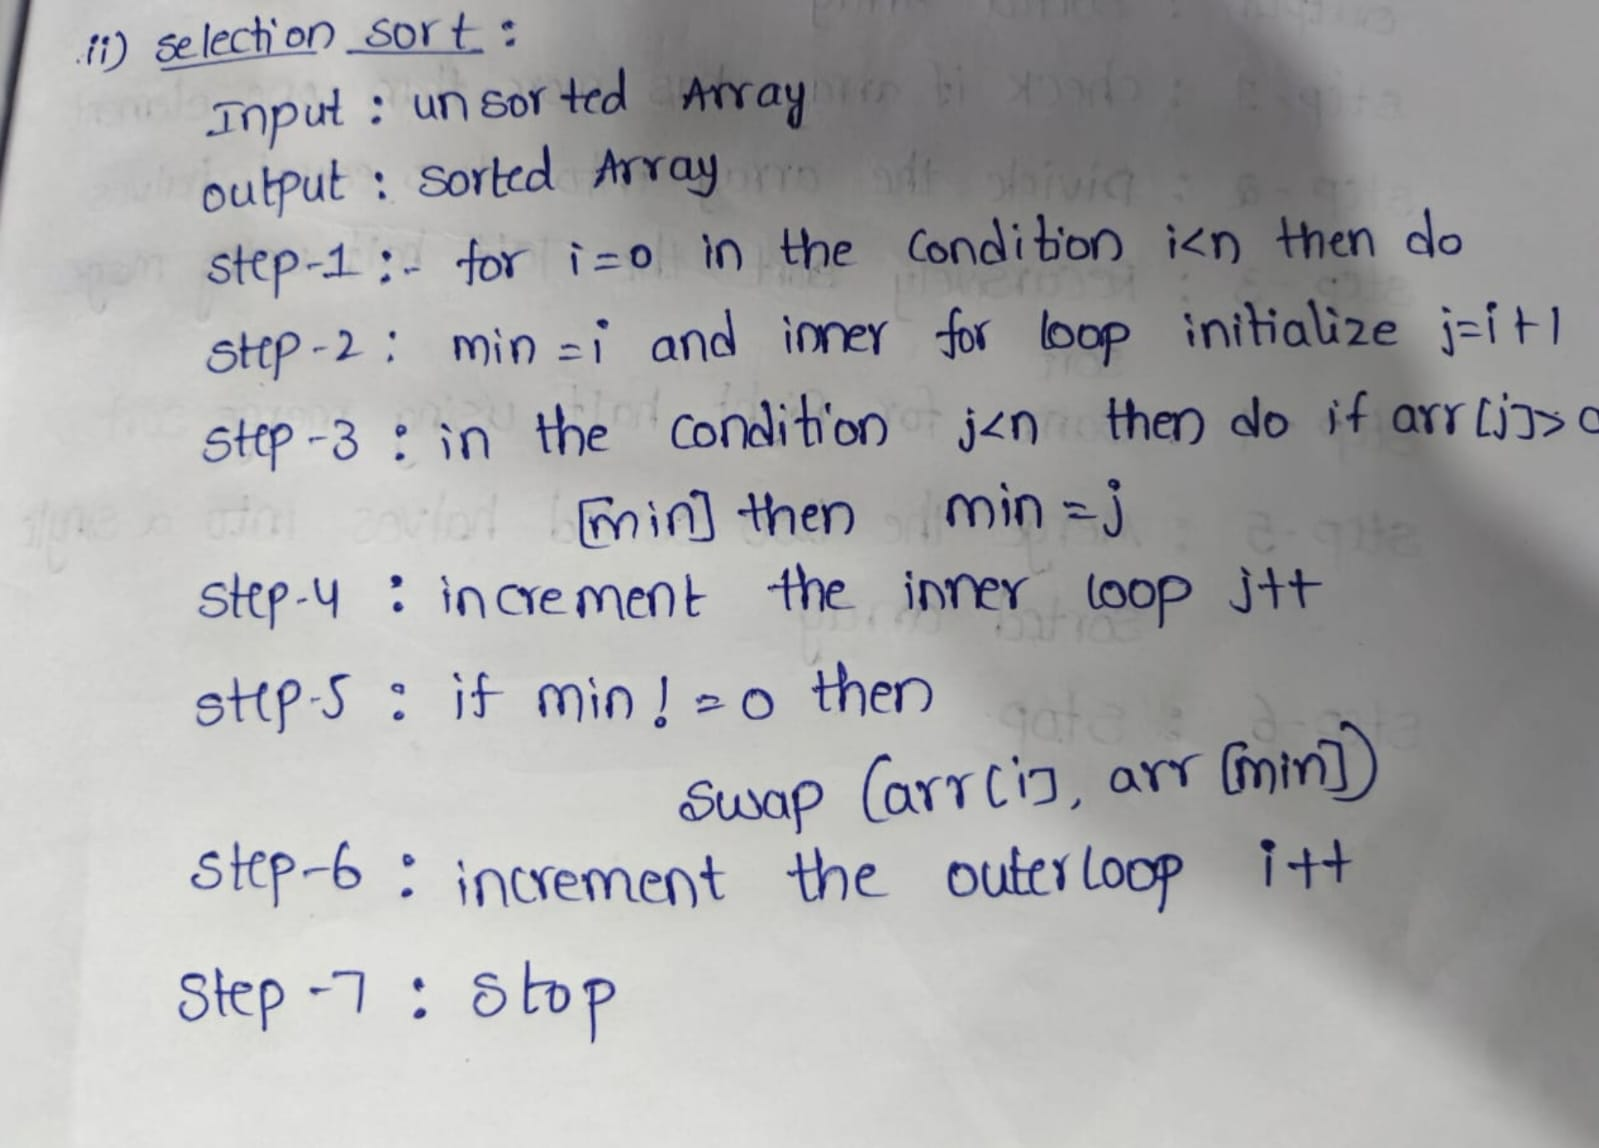 ii) selection sort :
Input : unsorted Array
output : sorted Array
step-1 :- for i=0 in the condition i<n then do
step-2 : min = i and inner for loop initialize j=i+1
step-3 : in the condition j<n then do if arr[j]>a
[min] then min = j
step-4 : increment the inner loop j++
step-5 : if min != 0 then
swap (arr[i], arr[min])
step-6 : increment the outer loop i++
step-7 : stop